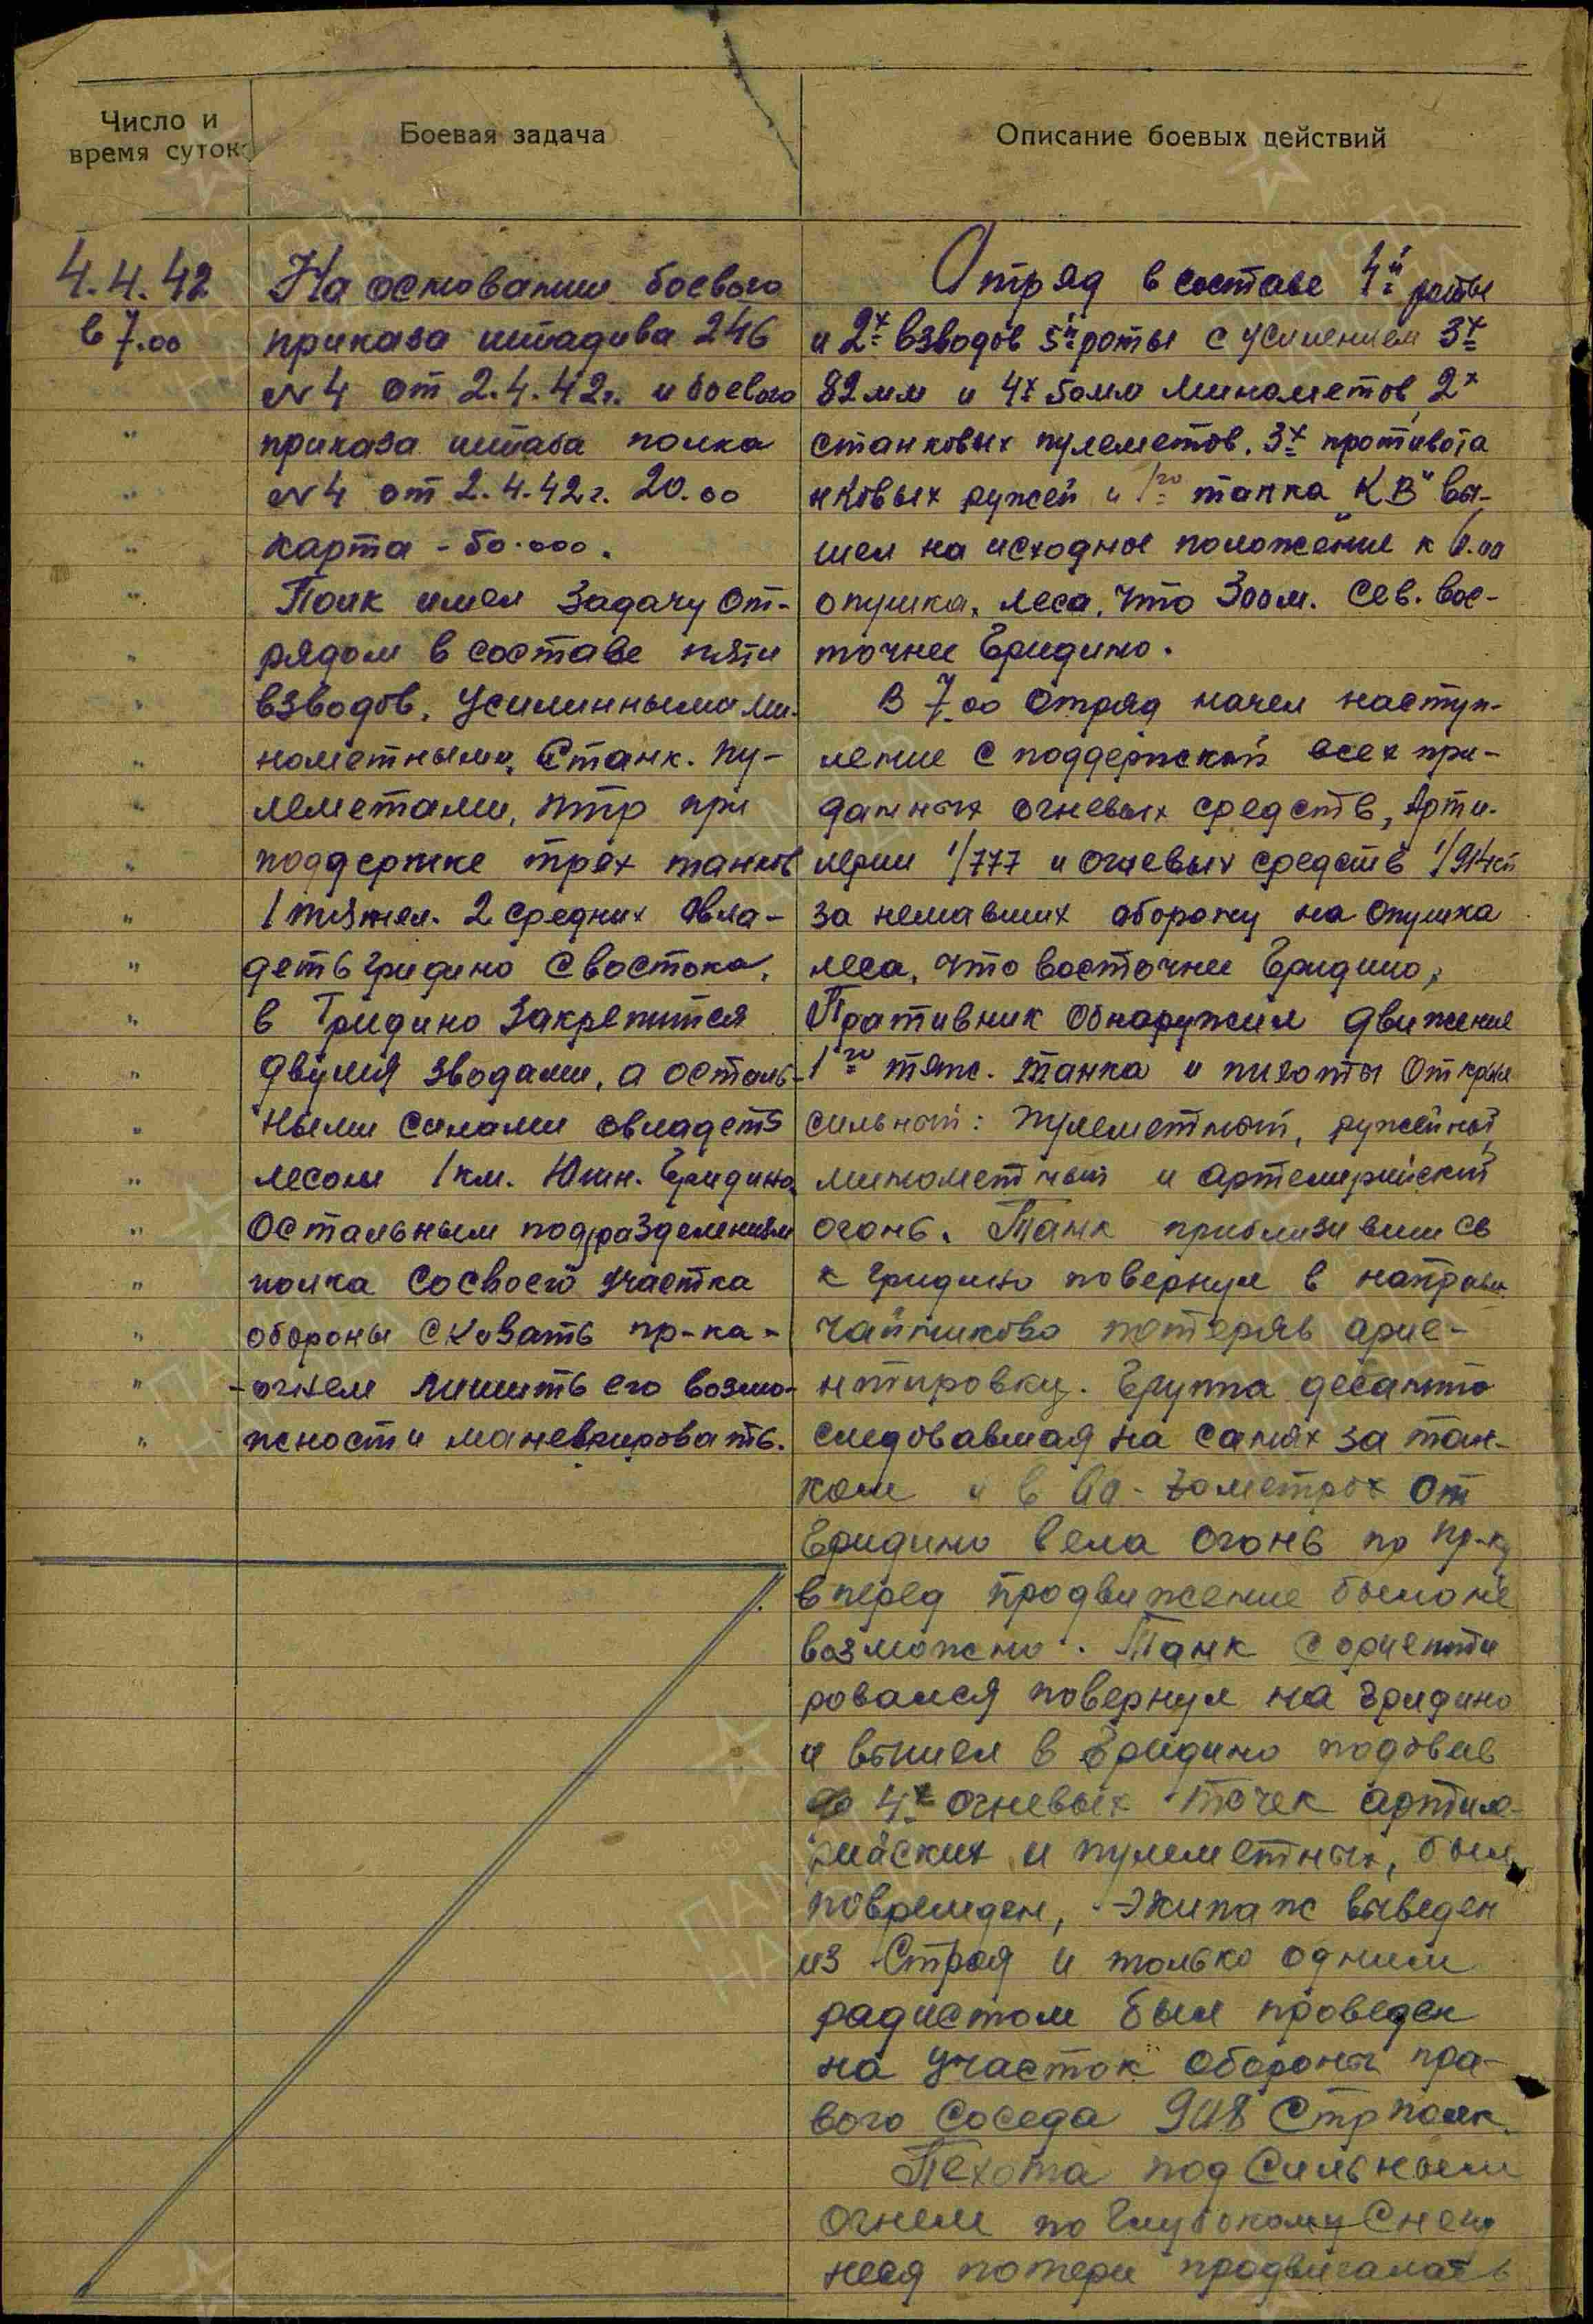 Число и
время суток
Боевая задача
Описание боевых действий
4.4.42
в 7.00
На основании боевого
приказа штадива 246
№ 4 от 2.4.42г. и боевого
приказа штаба полка
№ 4 от 2.4.42г. 20.00
карта - 50.000.
Полк имел задачу от-
рядом в составе пяти
взводов, усилинными ми-
нометными, станк. пу-
леметами, птр при
поддержке трех танков
1 тяжел. 2 средних овла-
деть гридино с востока,
в Гридино закрепится
двумя зводами, а осталь-
ными силами овладеть
лесом 1 км. Южн. Гридино
Остальным подразделениям
полка со своего участка
обороны сковать пр-ка -
- огнем лишить его возмо-
жности маневрировать.
Отряд в составе 4й роты
и 2х взводов 5й роты с усилением 3х
82мм и 4х 50мм минометов, 2х
станковых пулеметов, 3х противота
нковых ружей и 1го танка "КВ" вы-
шел на исходное положение к 6.00
опушка, леса, что 300м. Сев. вос-
точнее Гридино.
В 7.00 отряд начел наступ-
ление с поддержкой всех при-
данных огневых средств, Арти-
лерии 1/777 и огневых средств 1/914сп
занемавших оборону на опушка
леса, что восточнее Гридино,
Противник обнаружил движение
1го тяж. танка и пихоты открыл
сильный: пулеметный, ружейный
минометный и артелерийский
огонь. Танк приблизившись
к гридино повернул в направл.
чайниково потеряв орие-
нтировку. Группа десанта
следовавшая на санях за тан-
ком и в
метрах от
Гридино вела огонь по пр-ку
вперед продвижение было не
возможно. Танк сориенти
ровался повернул на гридино
и вышел в Гридино подовив
до 4х огневых точек артиле-
рийских и пулеметных, был
поврежден, экипаж выведен
из строя и только одним
радистом был проведен
на участок обороны пра-
вого соседа 908 Стр полк.
Пехота под сильным
огнем по глубокому снегу
неся потери продвигалась